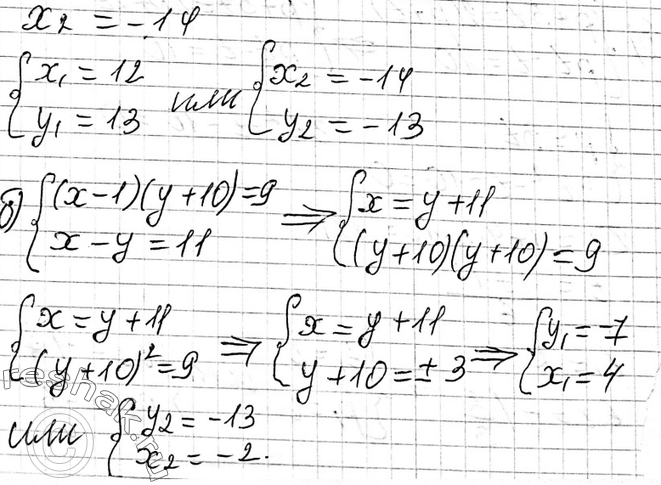 x₂ = -14
{x₁ = 12 y₁ = 13 или {x₂ = -14 y₂ = -13
б) {(x-1)(y+10)=9 x-y=11 ⇒ {x=y+11 (y+10)(y+10)=9
{x=y+11 (y+10)²=9 ⇒ {x=y+11 y+10=±3 ⇒ {y₁=-7 x₁=4
или {y₂=-13 x₂=-2.
reshak.ru